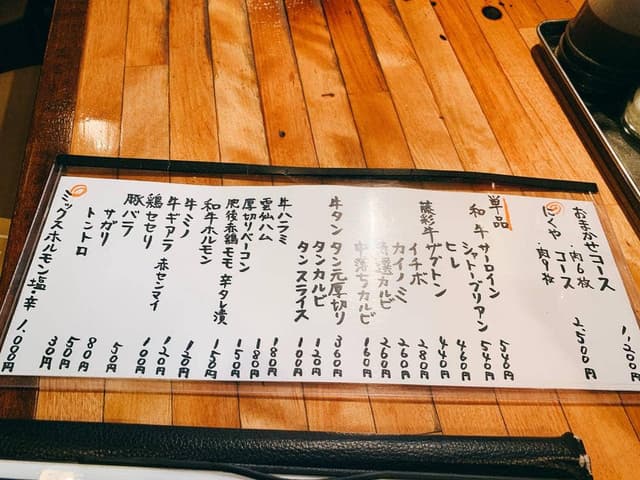 おまかせコース
・肉6枚 1,200円
にくやコース
・肉9枚 2,500円
単品
和牛サーロイン 540円
シャトーブリアン 540円
ヒレ 460円
藤彩牛ザブトン 440円
イチボ 280円
カイノミ 260円
特選カルビ 260円
中落ちカルビ 160円
牛タン タン元厚切り 360円
タンカルビ 120円
タンスライス 100円
牛ハラミ 180円
雲仙ハム 180円
厚切りベーコン 150円
肥後赤鶏モモ 辛タレ漬 150円
和牛ホルモン 120円
牛ミノ 120円
牛ギアラ 赤センマイ 100円
鶏セセリ 50円
豚バラ 80円
サガリ 50円
トントロ 30円
ミックスホルモン塩・辛 1,000円